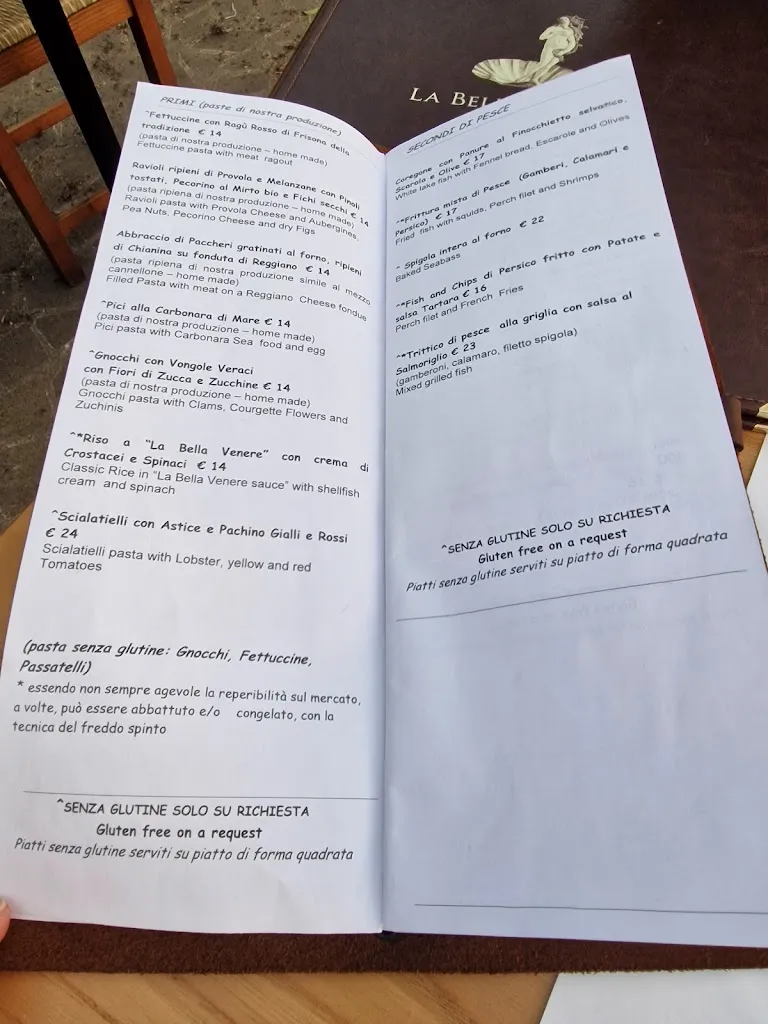 LA BEL
PRIMI (paste di nostra produzione)
^Fettuccine con Ragù Rosso di Frisona della
tradizione € 14
(pasta di nostra produzione – home made)
Fettuccine pasta with meat ragout
Ravioli ripieni di Provola e Melanzane con Pinoli
tostati, Pecorino al Mirto bio e Fichi secchi € 14
(pasta ripiena di nostra produzione – home made)
Ravioli pasta with Provola Cheese and Aubergines,
Pea Nuts, Pecorino Cheese and dry Figs
Abbraccio di Paccheri gratinati al forno, ripieni
di Chianina su fonduta di Reggiano € 14
(pasta ripiena di nostra produzione simile al mezzo
cannellone – home made)
Filled Pasta with meat on a Reggiano Cheese fondue
^Pici alla Carbonara di Mare € 14
(pasta di nostra produzione – home made)
Pici pasta with Carbonara Sea food and egg
^Gnocchi con Vongole Veraci
con Fiori di Zucca e Zucchine € 14
(pasta di nostra produzione – home made)
Gnocchi pasta with Clams, Courgette Flowers and
Zuchinis
^*Riso a "La Bella Venere" con crema di
Crostacei e Spinaci € 14
Classic Rice in "La Bella Venere sauce" with shellfish
cream and spinach
^Scialatielli con Astice e Pachino Gialli e Rossi
€ 24
Scialatielli pasta with Lobster, yellow and red
Tomatoes
(pasta senza glutine: Gnocchi, Fettuccine,
Passatelli)
* essendo non sempre agevole la reperibilità sul mercato,
a volte, può essere abbattuto e/o congelato, con la
tecnica del freddo spinto
^SENZA GLUTINE SOLO SU RICHIESTA
Gluten free on a request
Piatti senza glutine serviti su piatto di forma quadrata
SECONDI DI PESCE
Coregone con Panure al Finocchietto selvatico,
Scarola e Olive € 17
White lake fish with Fennel bread, Escarole and Olives
^*Frittura mista di Pesce (Gamberi, Calamari e
Persico) € 17
Fried fish with squids, Perch filet and Shrimps
^ Spigola intera al forno € 22
Baked Seabass
^*Fish and Chips di Persico fritto con Patate e
salsa Tartara € 16
Perch filet and French Fries
^*Trittico di pesce alla griglia con salsa al
Salmoriglio € 23
(gamberoni, calamaro, filetto spigola)
Mixed grilled fish
^SENZA GLUTINE SOLO SU RICHIESTA
Gluten free on a request
Piatti senza glutine serviti su piatto di forma quadrata